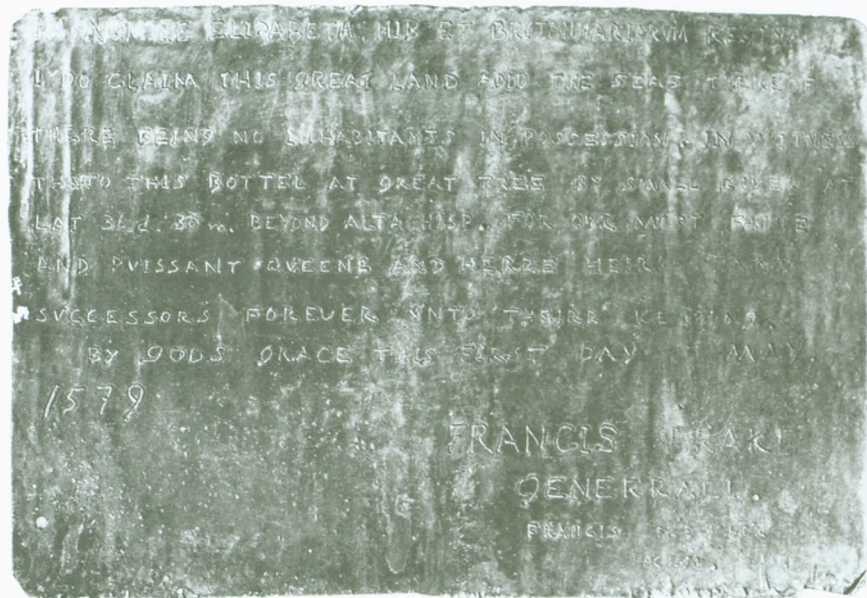 IN NOMINE ELIZABETH HIB ET BRITNNIARIVM REGINA
I DO CLAIM THIS GREAT LAND AND THE SEAS THEREOF
THERE BEING NO INHABITANTS IN POSSESSION. IN WITNES
THETO THIS BOTTEL AT GREAT TREE BY SMALL RIVER AT
LAT 36 d. 30 m. BEYOND ALTA HISP. FOR OUR MOST
AND PVISSANT QVEENE AND HERRE HEIRS AND
SVCCESSORS FOREUER VNTO THEIRR KEEPING.
BY GODS GRACE THIS FIRST DAY MAY
1579
FRANCIS DRAKE
GENERRALL.
FRANCIS